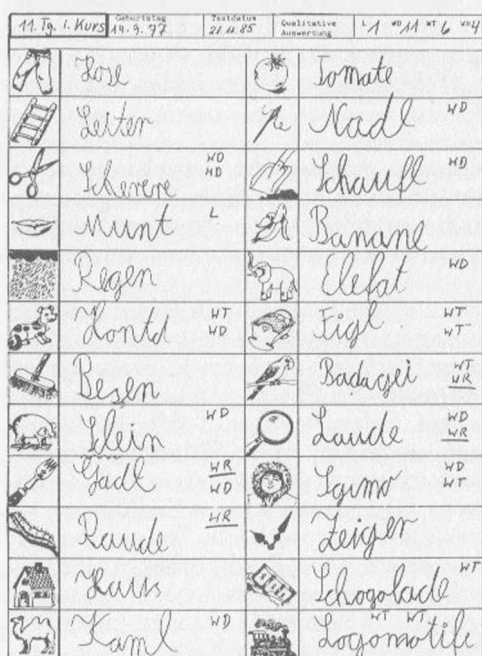 11. Tg. i. Kurs Geburtstag 14.9.77 Testdatum 21.11.85 Qualitative Auswertung L 1 WD 11 WT 6 WR 4
Hose Tomate
Leiter Nadl WD
Scherere WD WD Schaufl WD
Munt L Banane
Regen Elefat WD
Hontd WT WD Figl WT WT
Besen Badagei WT WR
Slein WD Laude WD WR
Gadl WR WD Sgimo WD WT
Raude WR Zeiger
Haus Schogolade WT
Kaml WD Logomotife WT WT